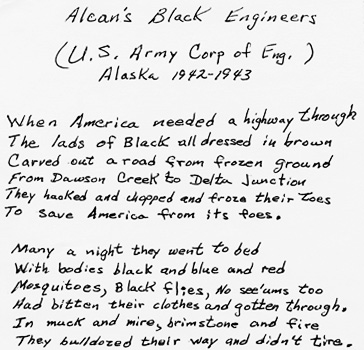 Alcan's Black Engineers
(U.S. Army Corp of Eng. )
Alaska 1942-1943
When America needed a highway through
The lads of Black all dressed in brown
Carved out a road from frozen ground
From Dawson Creek to Delta Junction
They hacked and chopped and froze their toes
To save America from its foes.
Many a night they went to bed
With bodies black and blue and red
Mosquitoes, Black flies, No see'ums too
Had bitten their clothes and gotten through.
In muck and mire, brimstone and fire
They bulldozed their way and didn't tire.